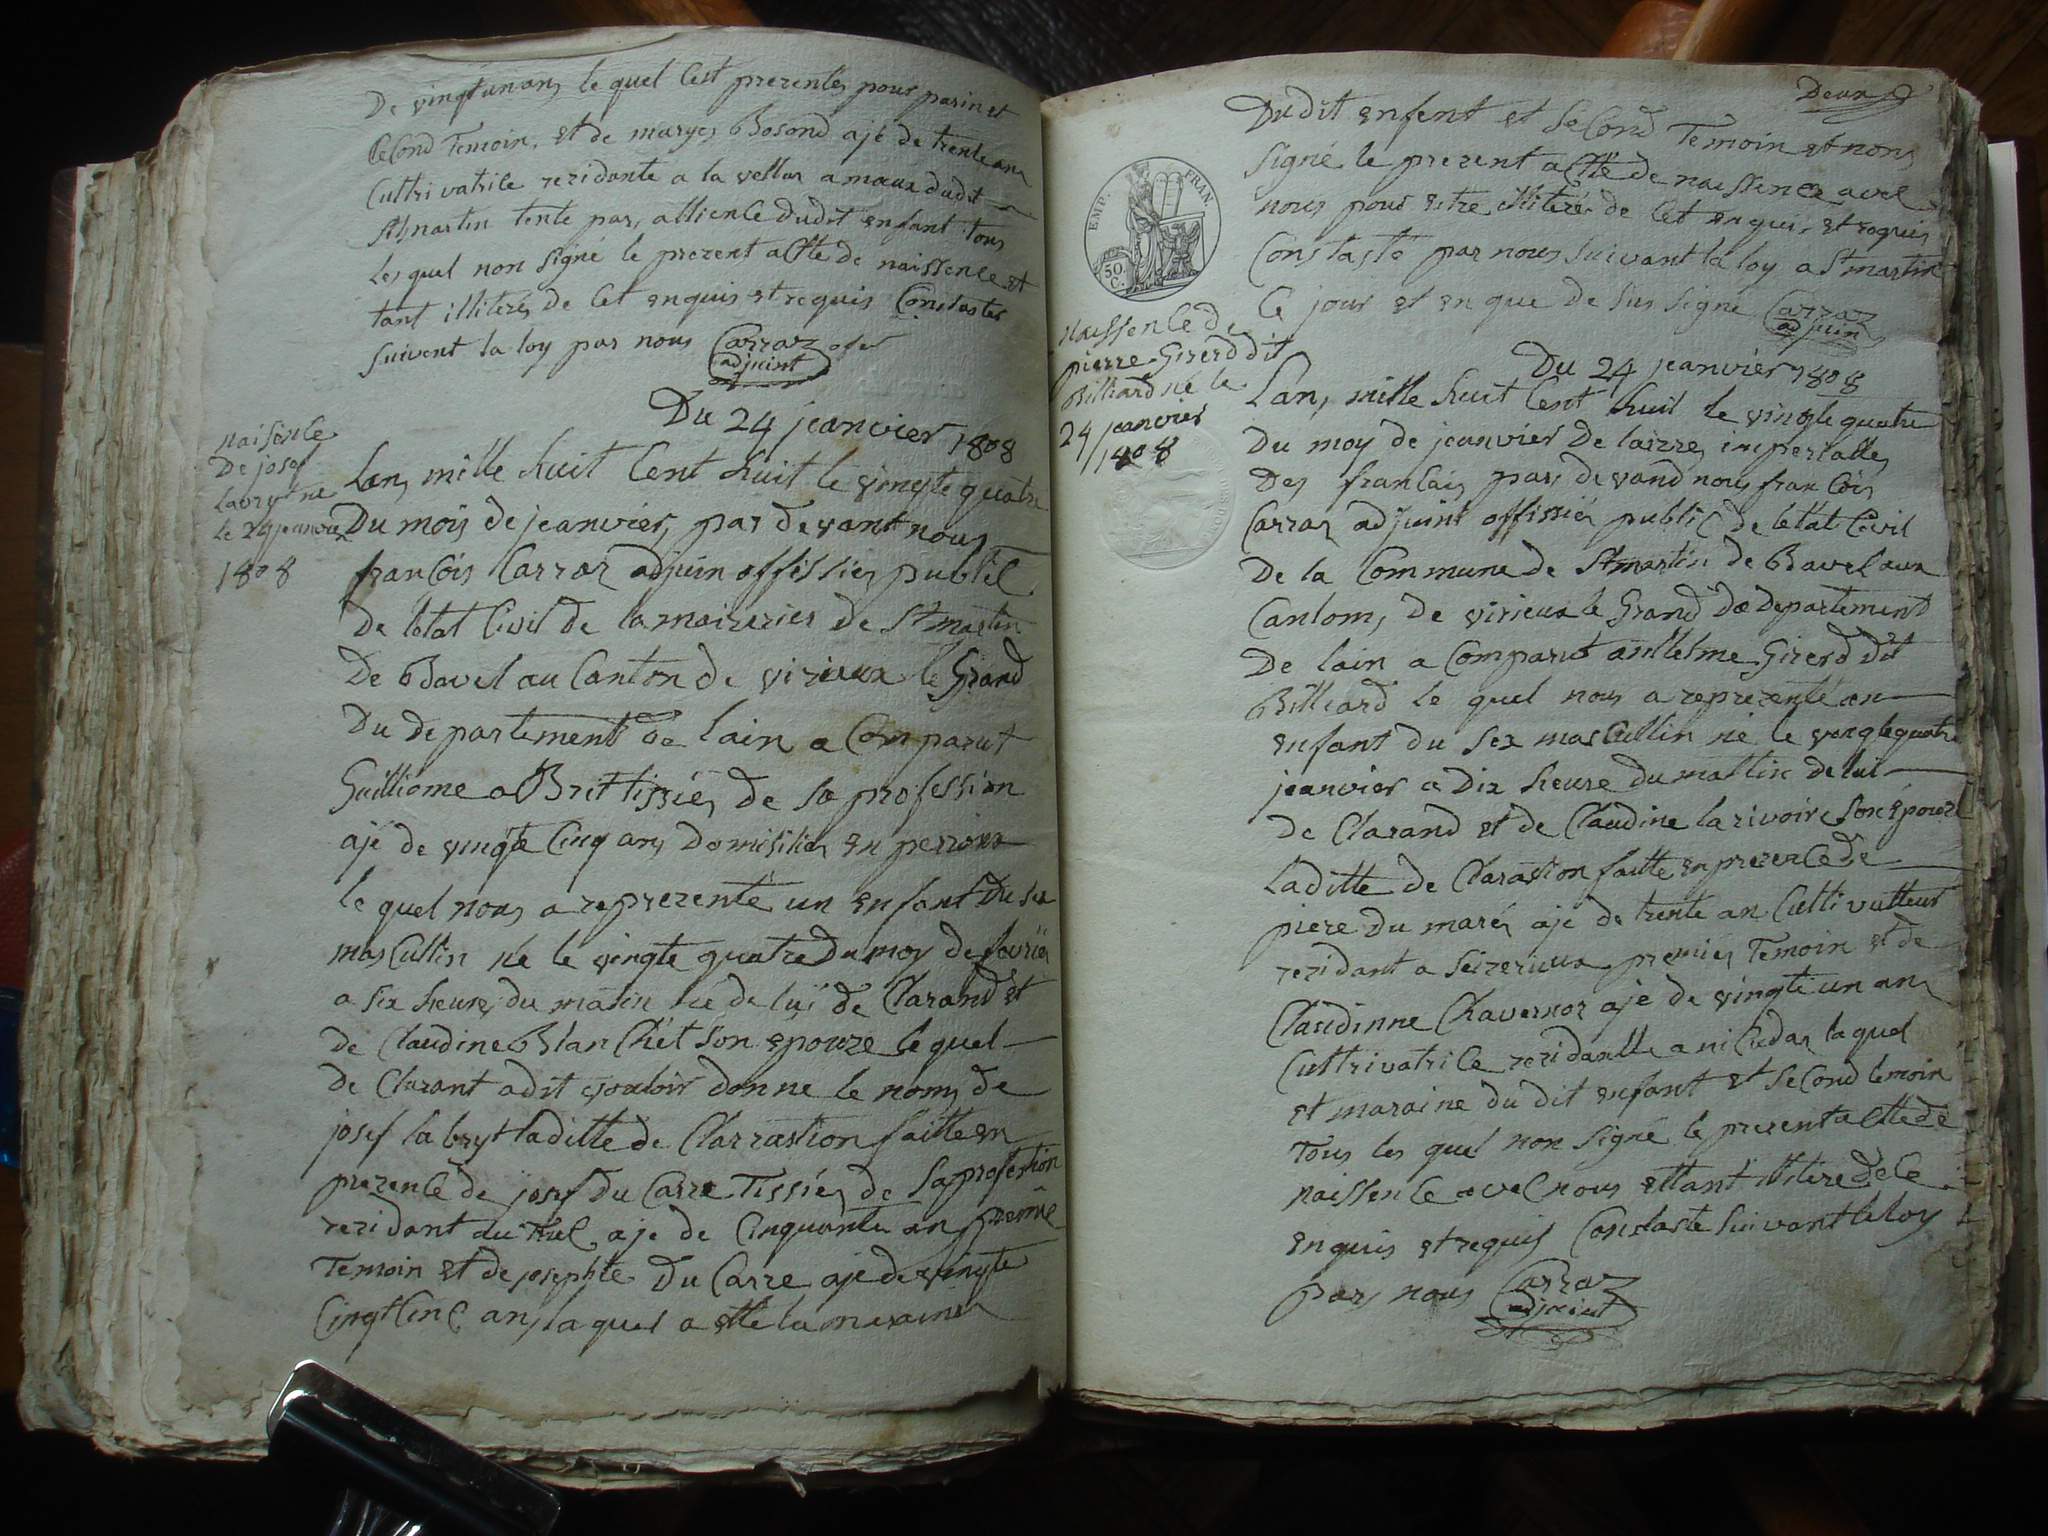 De vingt un ans le quel cest prezentes pour parin et
second Temoin, et de marye Bosond ajé de trente ans
Culttrivatrice rezidante a la vellas a meaux dudit
St martin tente par allience dudit enfant tous
les quel non signé le prezent actte de naissence et
tant illiteré de cet enquis et requis Constastes
suivent la loy par nous Carraz
adjuint
Du 24 jeanvier 1808
naisence
De josef
labrytne
le 24 jeanvier
1808
Lan mille huit Cent huit le vingte quatre
Du mois de jeanvier, par devant nous
francois Carraz adjuin offissier publiC
De letat Civil De la maireries de St martin
De Bavel au Canton de virieux le Grand
Du departement de lain a Comparut
Guilliome Brettissier de sa profession
ajé de vingte Cinq ans Domisilier en
le quel nous a reprezenté un enfant Du sex
masCullin né le vingte quatre Du moy de fevrier
a six heures du matin né de lui de Clarand et
de Claudine BlanChet son epouze le quel
de Clarant a dit vouloir donne le nom de
josef labryt laditte de Clarrastion faitte en
prezence de josef Du Carre Tissier de sa profestion
rezidant au a je de Cinquante an premie
Temoin et de josephte Du Carre aje de vingte
Cinq ans la quel a ette la maraine
Deux
Dudit enfent et seCond Temoin et nons
signé le prezent actte de naissence avec
nous pour estre illiteré de Cet enquis et requis
Constaste par nous suivant la loy a St martin
Ce jour et en que de sus signe Carraz
adjuin
EMP. FRAN.
50.
C.
naissence de
pierre Girerd dit
Billiard né le
24 jeanvier
1808
Du 24 jeanvier 1808
Lan, mille huit Cent huit le vingte quatre
Du moy de jeanvier De lairre imperialles
Des francais par devand nous francois
Carraz adjuint offissier public de letat Civil
De la Commune de St martin de Bavel aux
Cantom, de virieux le Grand de departement
De lain a Comparut anttelme Girerd dit
Billiard le quel nous a reprezenté un
enfant du sex masCullin né le vingte quatre
jeanvier a Dix heure du mattin de lui
de Clarand et de Claudine larivoire son epouze
Laditte de Clarastion faitte en prezence de
piere Du marés aje de trente an Culttivatteur
rezidant a Seizerieux premier Temoin et de
Claudinne Chavernoz aje de vingte un an
Culttrivatrice rezidantte a la quel
et maraine du dit enfant et seCond temoin
Tous les quel non signé le prezent actte de
naissence avec nous ettant illitere de Ce
enquis et requis Constaste suivant la loy
par nous Carraz
adjuint